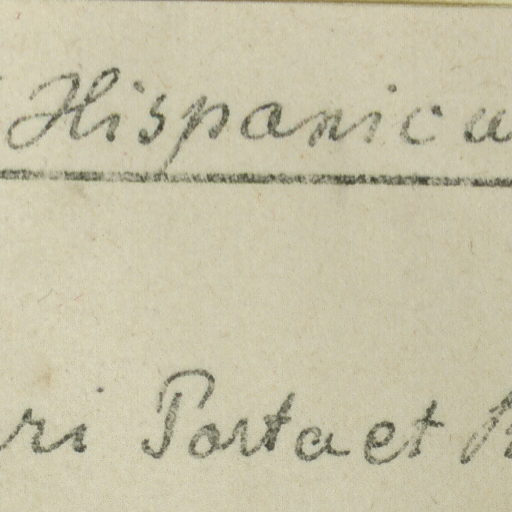 Hispanicu
ri Porta et